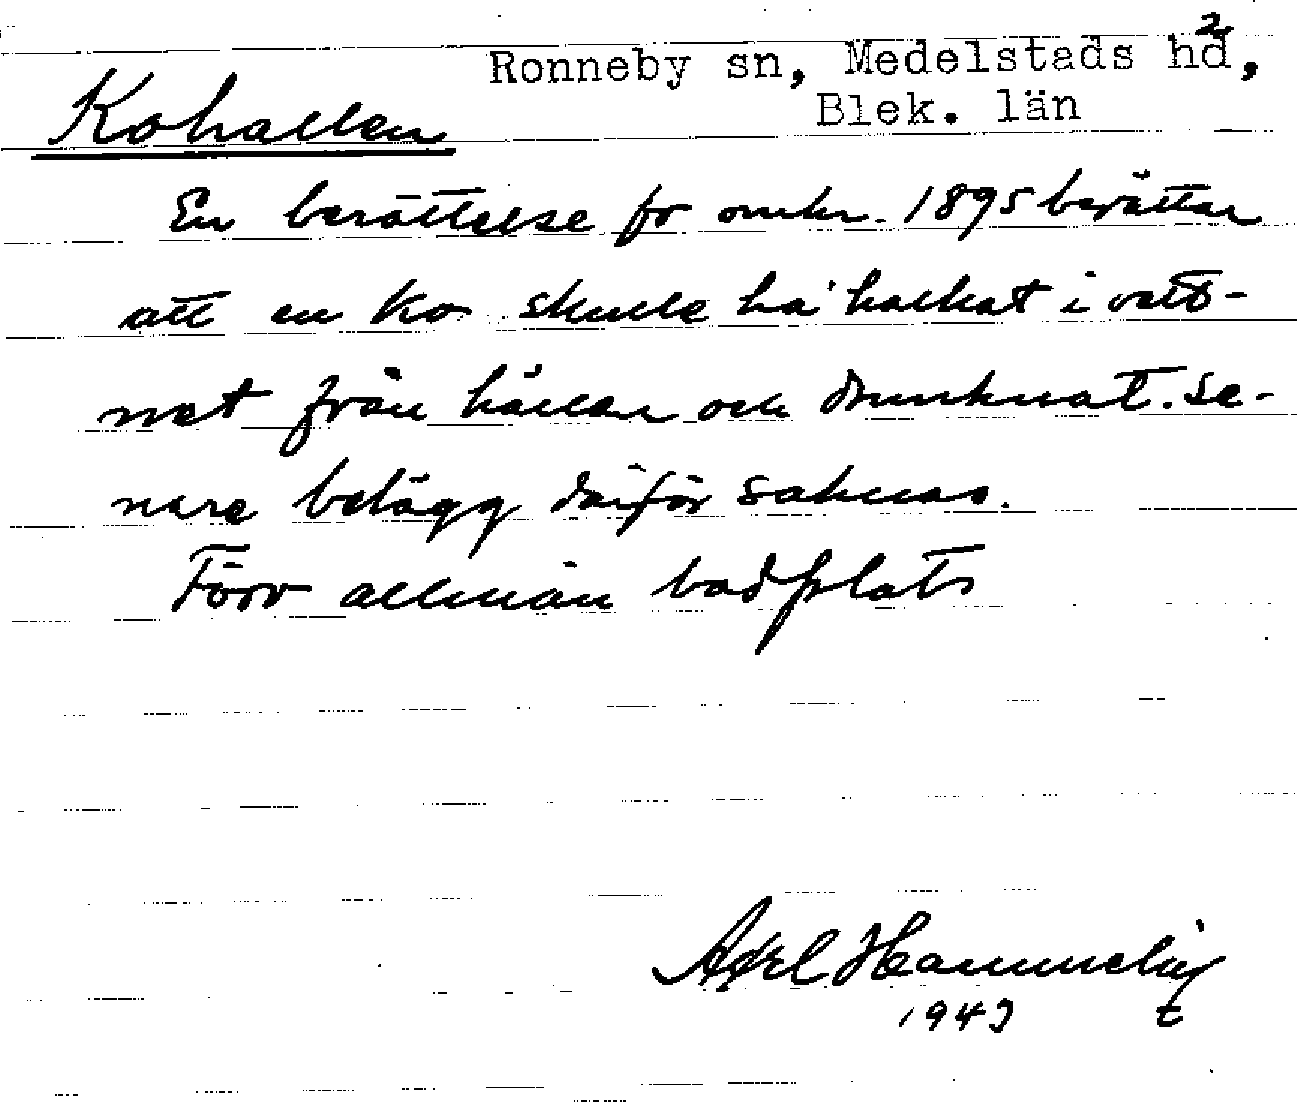 2
Ronneby sn, Medelstads hd,
Blek. län
Kohallen
En berättelse fr omkr. 1895 berättar
att en ko skulle ha' halkat i vatt-
net från hällen och drunknat. Se-
nare belägg därför saknas.
Förr allmän badplats
Axel
194